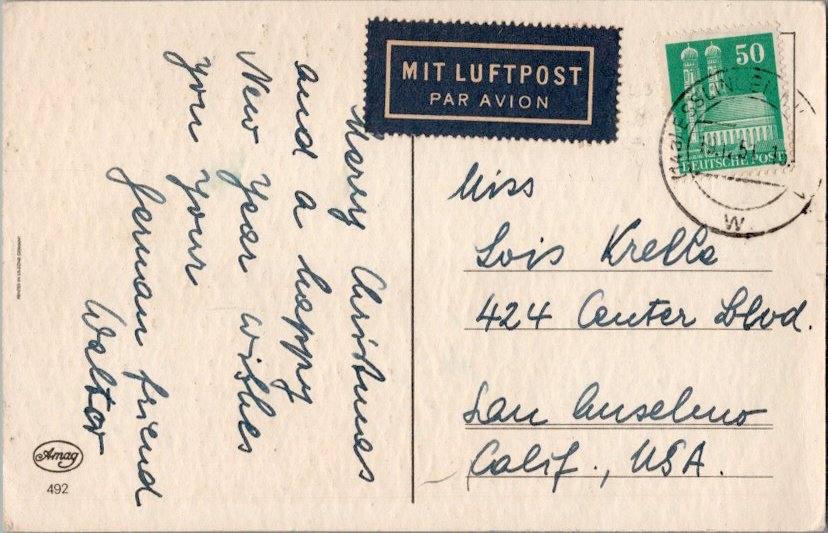 Merry Christmas
and a happy
New Year wishes
you your
German friend
Walter
MIT LUFTPOST
PAR AVION
50
DEUTSCHE POST
W
Miss
Lois Krelle
424 Center Blvd.
San Anselmo
Calif., USA.
Amag
492